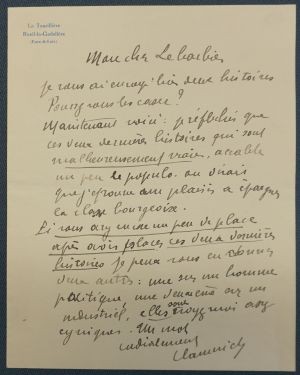 La Tourillière
Rueil-la-Gadelière
(Eure-&-Loir)
Mon cher Lebarbier
Je vous ai envoyé hier deux histoires
Pouvez vous les caser ?
Maintenant voici : réfléchis que
ces deux dernières histoires qui sont
malheureusement vraies, accable
un peu le populo. on dirait
que j'éprouve un plaisir à épargner
la classe bourgeoise.
Si vous avez encore un peu de place
après avoir placé ces deux dernières
histoires je peux vous en donner
deux autres : une sur un homme
politique, une deuxième sur un
industriel, elles sont assez
cyniques. Un mot
cordialement
Vlaminck